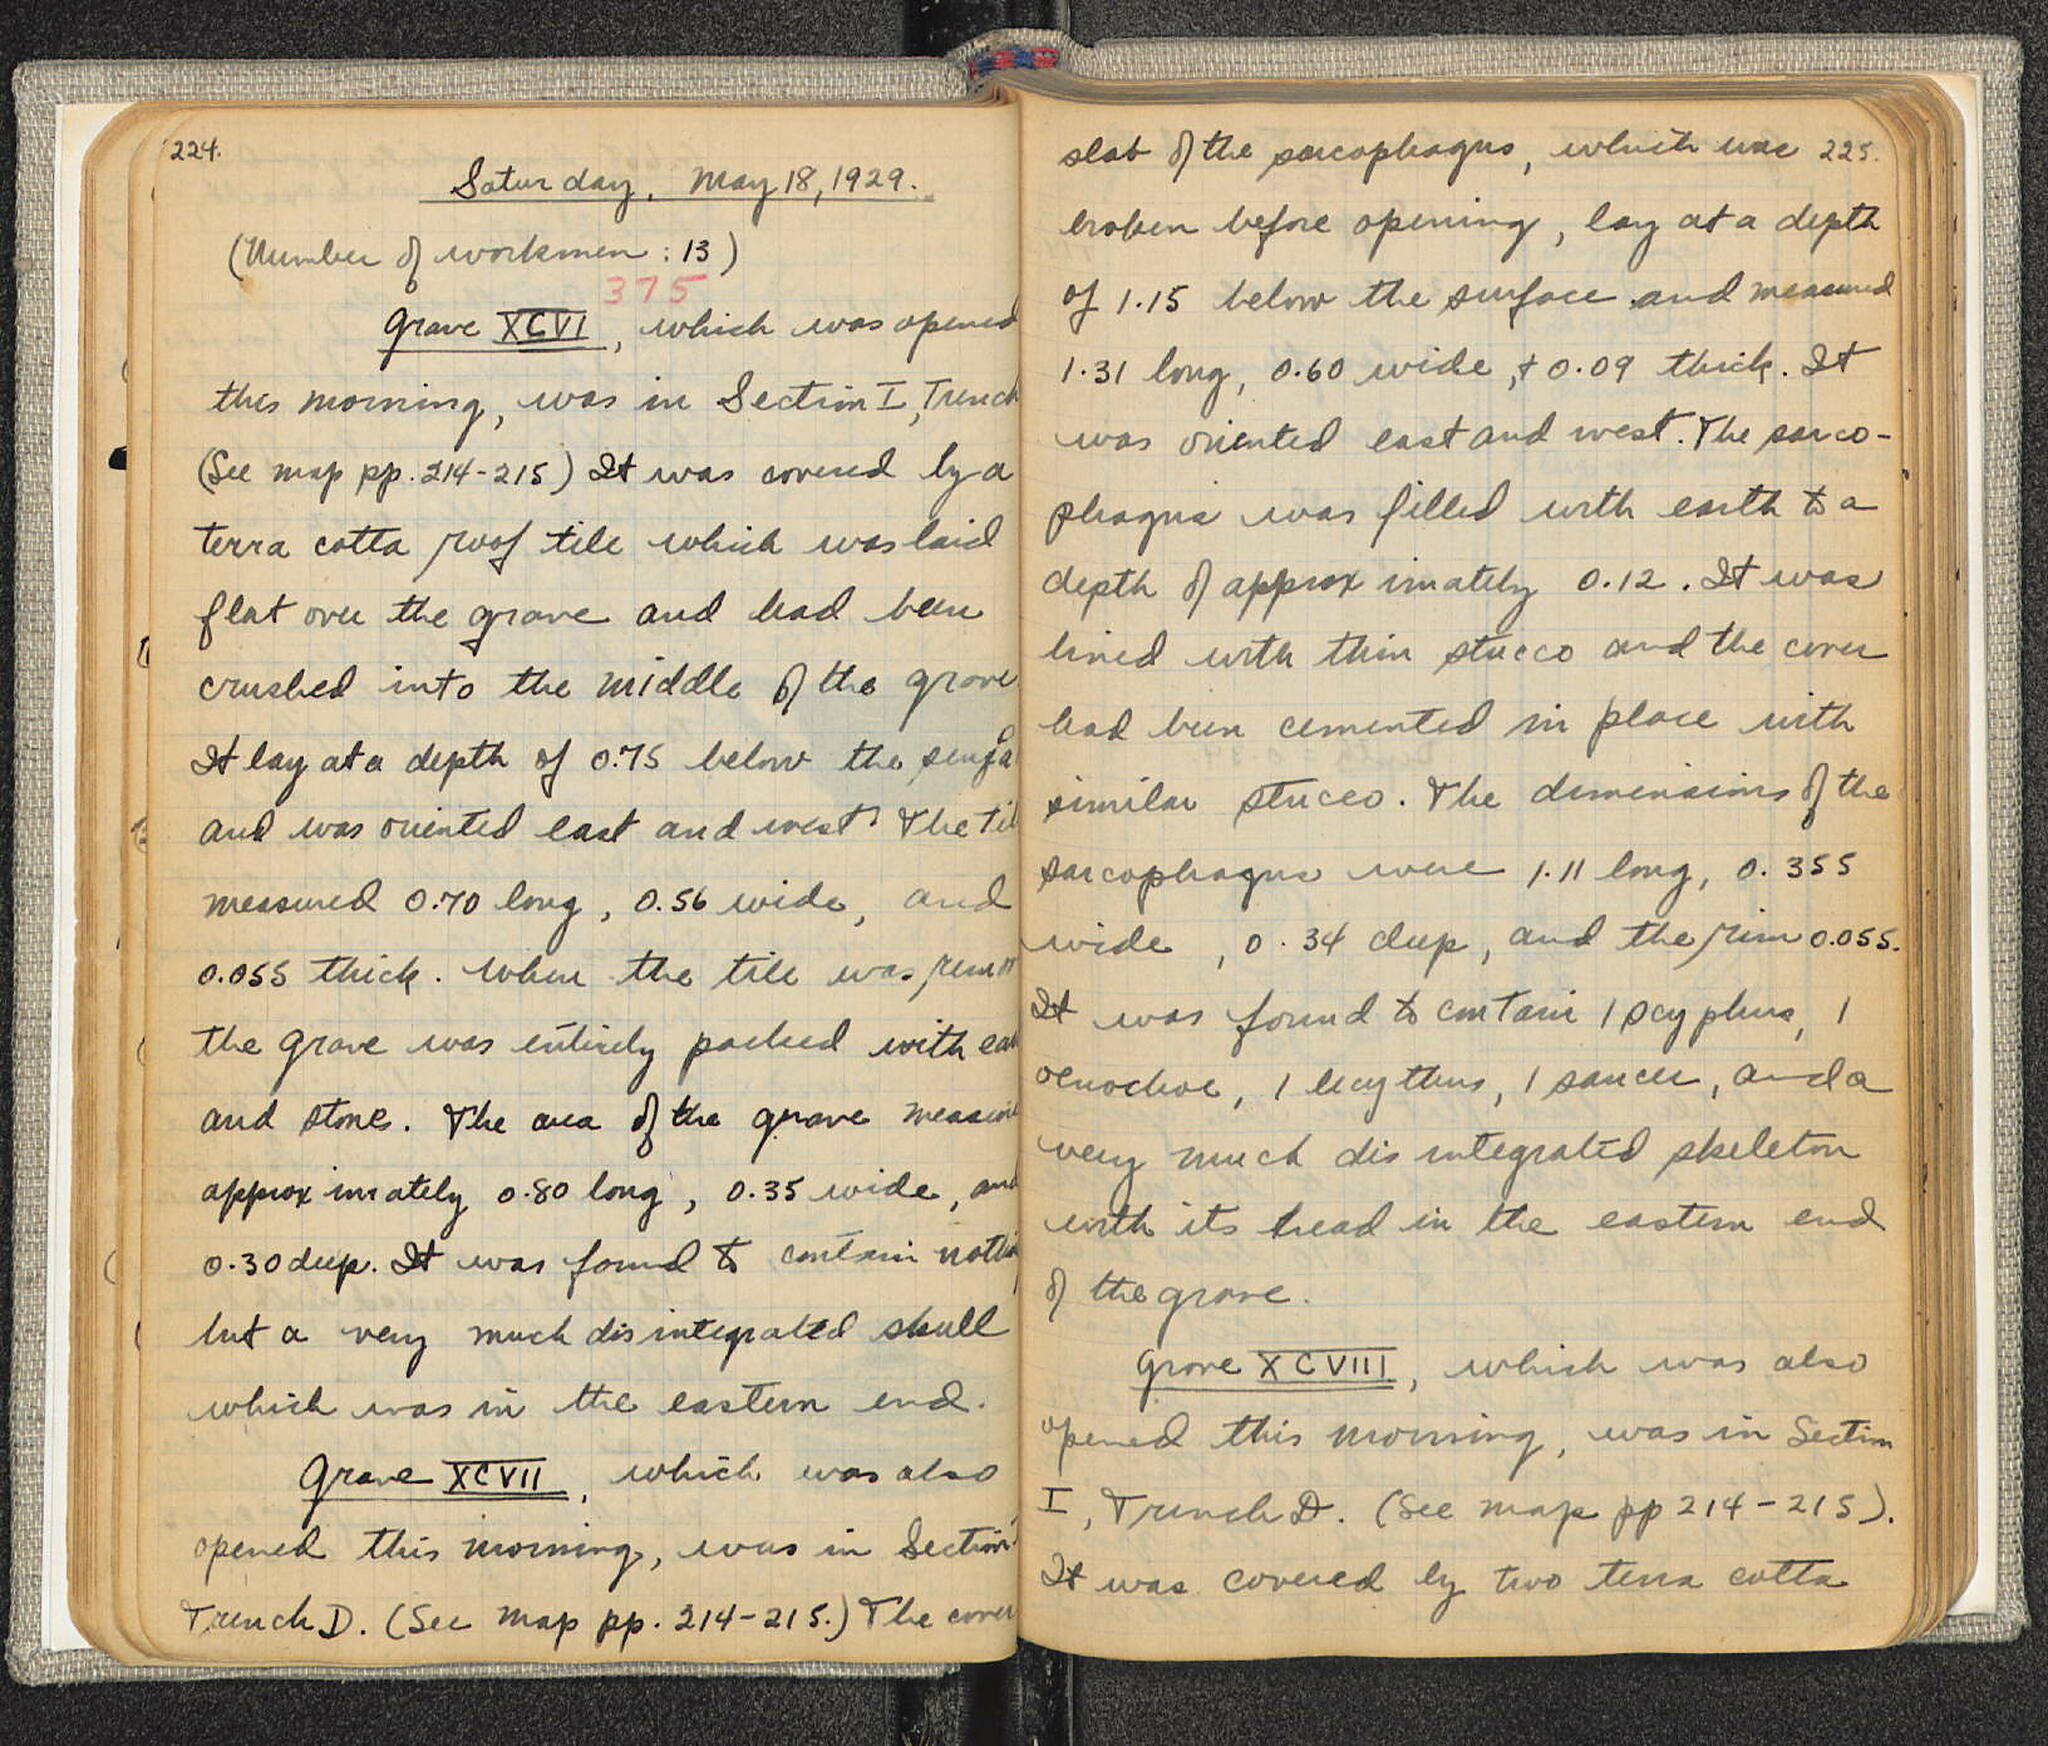 224.
Saturday, May 18, 1929.
(Number of workmen : 13)
375
Grave XCVI, which was opened
this morning, was in Section I, Trench
(See map pp. 214-215) It was covered by a
terra cotta roof tile which was laid
flat over the grave and had been
crushed into the middle of the grave
It lay at a depth of 0.75 below the surfa
and was oriented east and west. The til
measured 0.70 long, 0.56 wide, and
0.055 thick. When the tile was remo
the grave was entirely packed with ea
and stones. The area of the grave measure
approximately 0.80 long, 0.35 wide, and
0.30 deep. It was found to contain nothi
but a very much disintegrated skull
which was in the eastern end.
Grave XCVII, which was also
opened this morning, was in Section
Trench D. (See map pp. 214-215.) The cover
225.
slab of the sarcophagus, which was
broken before opening, lay at a depth
of 1.15 below the surface and measured
1.31 long, 0.60 wide, + 0.09 thick. It
was oriented east and west. The sarco-
phagus was filled with earth to a
depth of approximately 0.12. It was
lined with thin stucco and the cover
had been cemented in place with
similar stucco. The dimensions of the
sarcophagus were 1.11 long, 0.355
wide, 0.34 deep, and the rim 0.055.
It was found to contain 1 scyphus, 1
oenochoe, 1 lecythus, 1 saucer, and a
very much disintegrated skeleton
with its head in the eastern end
of the grave.
Grave XCVIII, which was also
opened this morning, was in Section
I, Trench D. (See map pp 214-215).
It was covered by two terra cotta